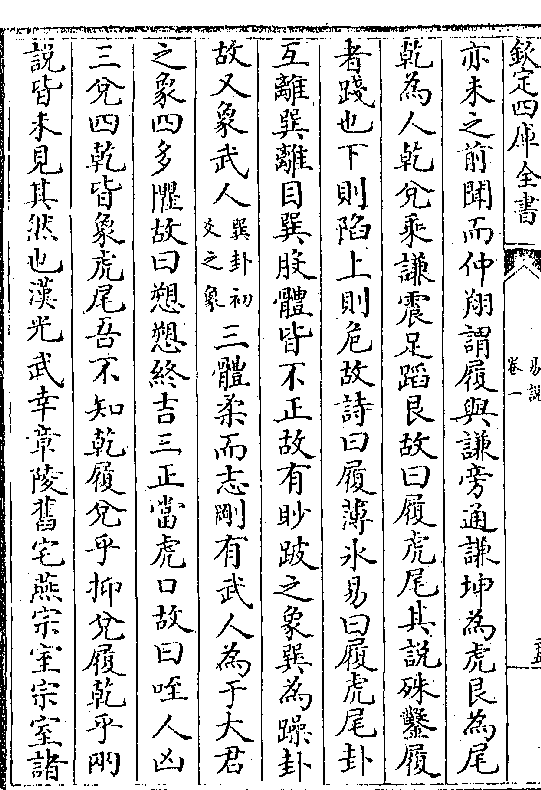 欽定四庫全書
易說
卷一
亦未之前聞而仲翔謂履與謙旁通謙坤為虎艮為尾
乾為人乾兌乘謙震足蹈艮故曰履虎尾其說殊鑿履
者踐也下則陷上則危故詩曰履薄氷易曰履虎尾卦
互離巽離目巽股體皆不正故有眇跛之象巽為躁卦
故又象武人巽卦初爻之象三體柔而志剛有武人為于大君
之象四多懼故曰愬愬終吉三正當虎口故曰咥人凶
三兌四乾皆象虎尾吾不知乾履兌乎抑兌履乾乎兩
說皆未見其然也漢光武幸章陵舊宅燕宗室宗室諸